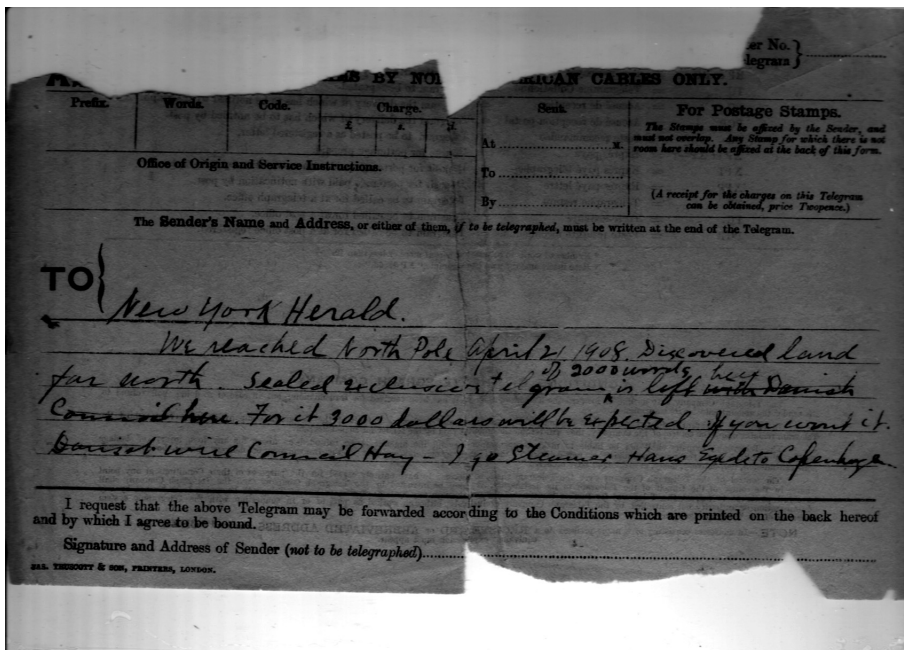 er No.
elegram
BY NO RICAN CABLES ONLY.
Prefix. Words. Code. Charge. Sent. For Postage Stamps.
£ s. d.
The Stamps must be affixed by the Sender, and
must not overlap. Any Stamp for which there is not
room here should be affixed at the back of this form.
At M.
Office of Origin and Service Instructions.
To
By
(A receipt for the charges on this Telegram
can be obtained, price Twopence.)
The Sender's Name and Address, or either of them, if to be telegraphed, must be written at the end of the Telegram.
TO
New York Herald.
We reached North Pole April 21 1908. Discovered land
of 2000 words here
far north. Sealed exclusive telegram is left with Danish
Council here. For it 3000 dollars will be expected. If you want it.
Danish wire Council Hay - I go Steamer Hans Egede to Copenhagen.
I request that the above Telegram may be forwarded according to the Conditions which are printed on the back hereof
and by which I agree to be bound.
Signature and Address of Sender (not to be telegraphed)
& SON, PRINTERS, LONDON.